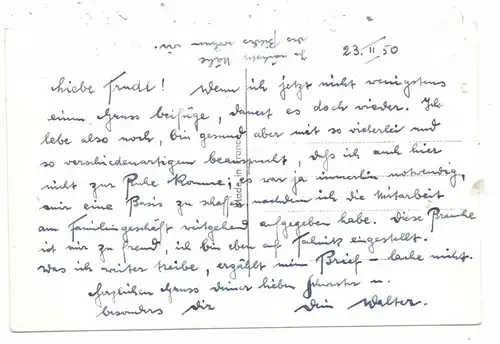 In nächster Nähe
des Bildes wohnen wir.
23. II 50
Liebe Trudl! Wenn ich jetzt nicht wenigstens
einen Gruss beifüge, dauert es doch wieder. Ich
lebe also noch, bin gesund aber mit so vielerlei und
so verschiedenartigem beansprucht, daß ich auch hier
nicht zur Ruhe komme; es war ja immerhin notwendig,
mir eine Basis zu schaffen nachdem ich die Mitarbeit
am Familiengeschäft aufgegeben habe. Diese Branche
ist mir zu fremd, ich bin eben auf eingestellt.
Was ich weiter treibe, erzählt mein Brief – lache nicht.
Herzlichen Gruss deiner lieben Schwester u.
besonders Dir Dein Walter.
Made in France